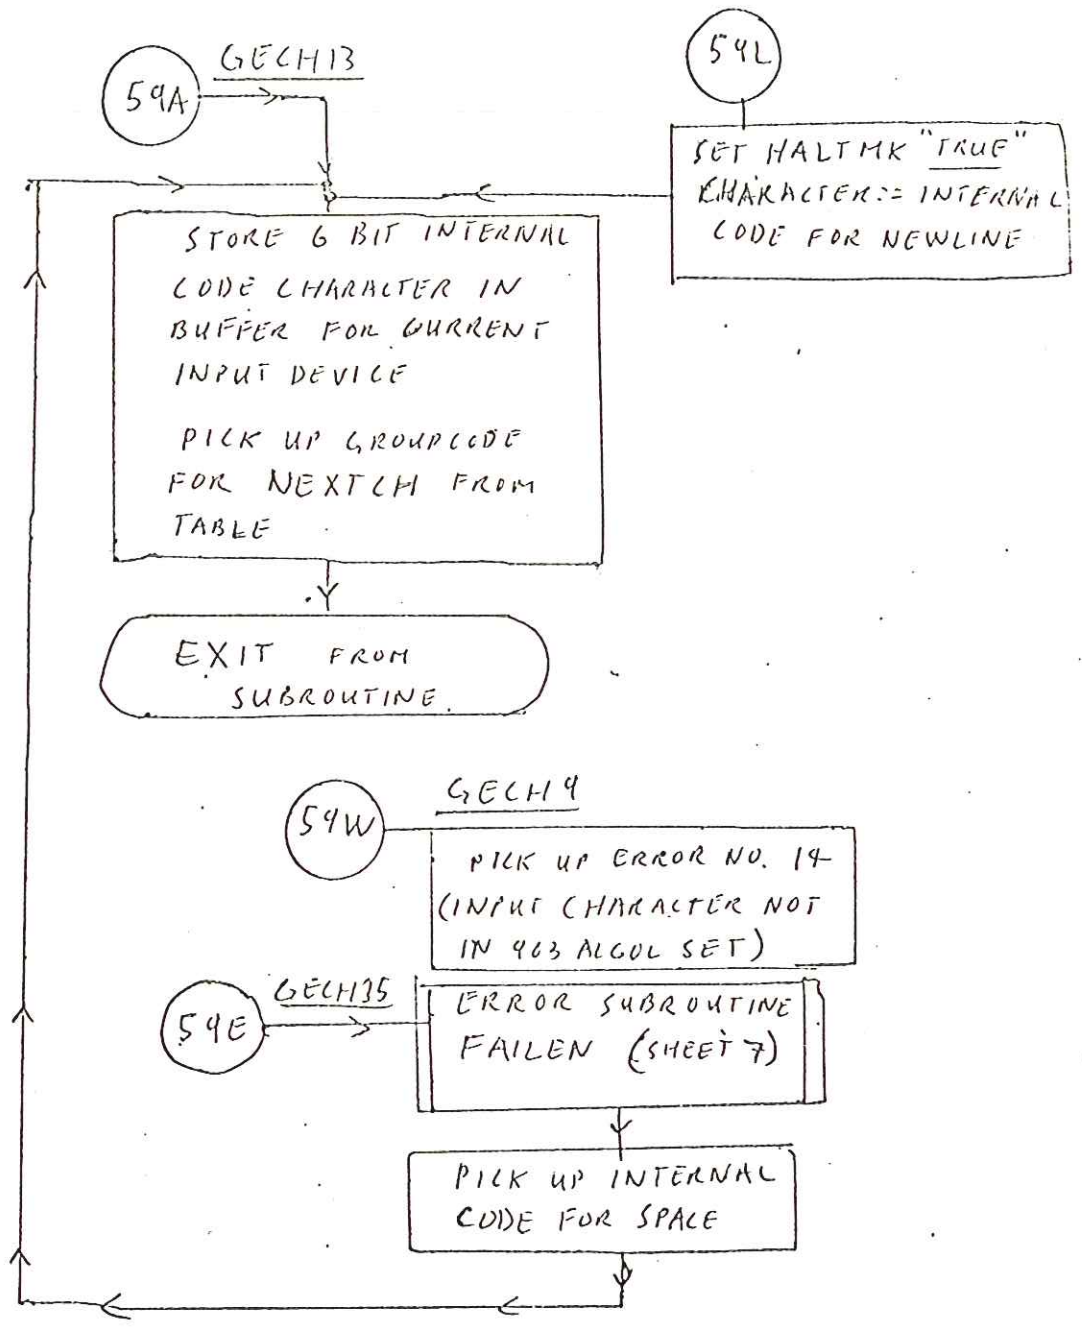 GECH13
59A
59L
SET HALTMK "TRUE"
CHARACTER:= INTERNAL
CODE FOR NEWLINE
STORE 6 BIT INTERNAL
CODE CHARACTER IN
BUFFER FOR CURRENT
INPUT DEVICE
PICK UP GROUPCODE
FOR NEXTCH FROM
TABLE
EXIT FROM
SUBROUTINE
GECH9
59W
PICK UP ERROR NO. 14
(INPUT CHARACTER NOT
IN 903 ALGOL SET)
GECH35
59E
ERROR SUBROUTINE
FAILEN (SHEET 7)
PICK UP INTERNAL
CODE FOR SPACE